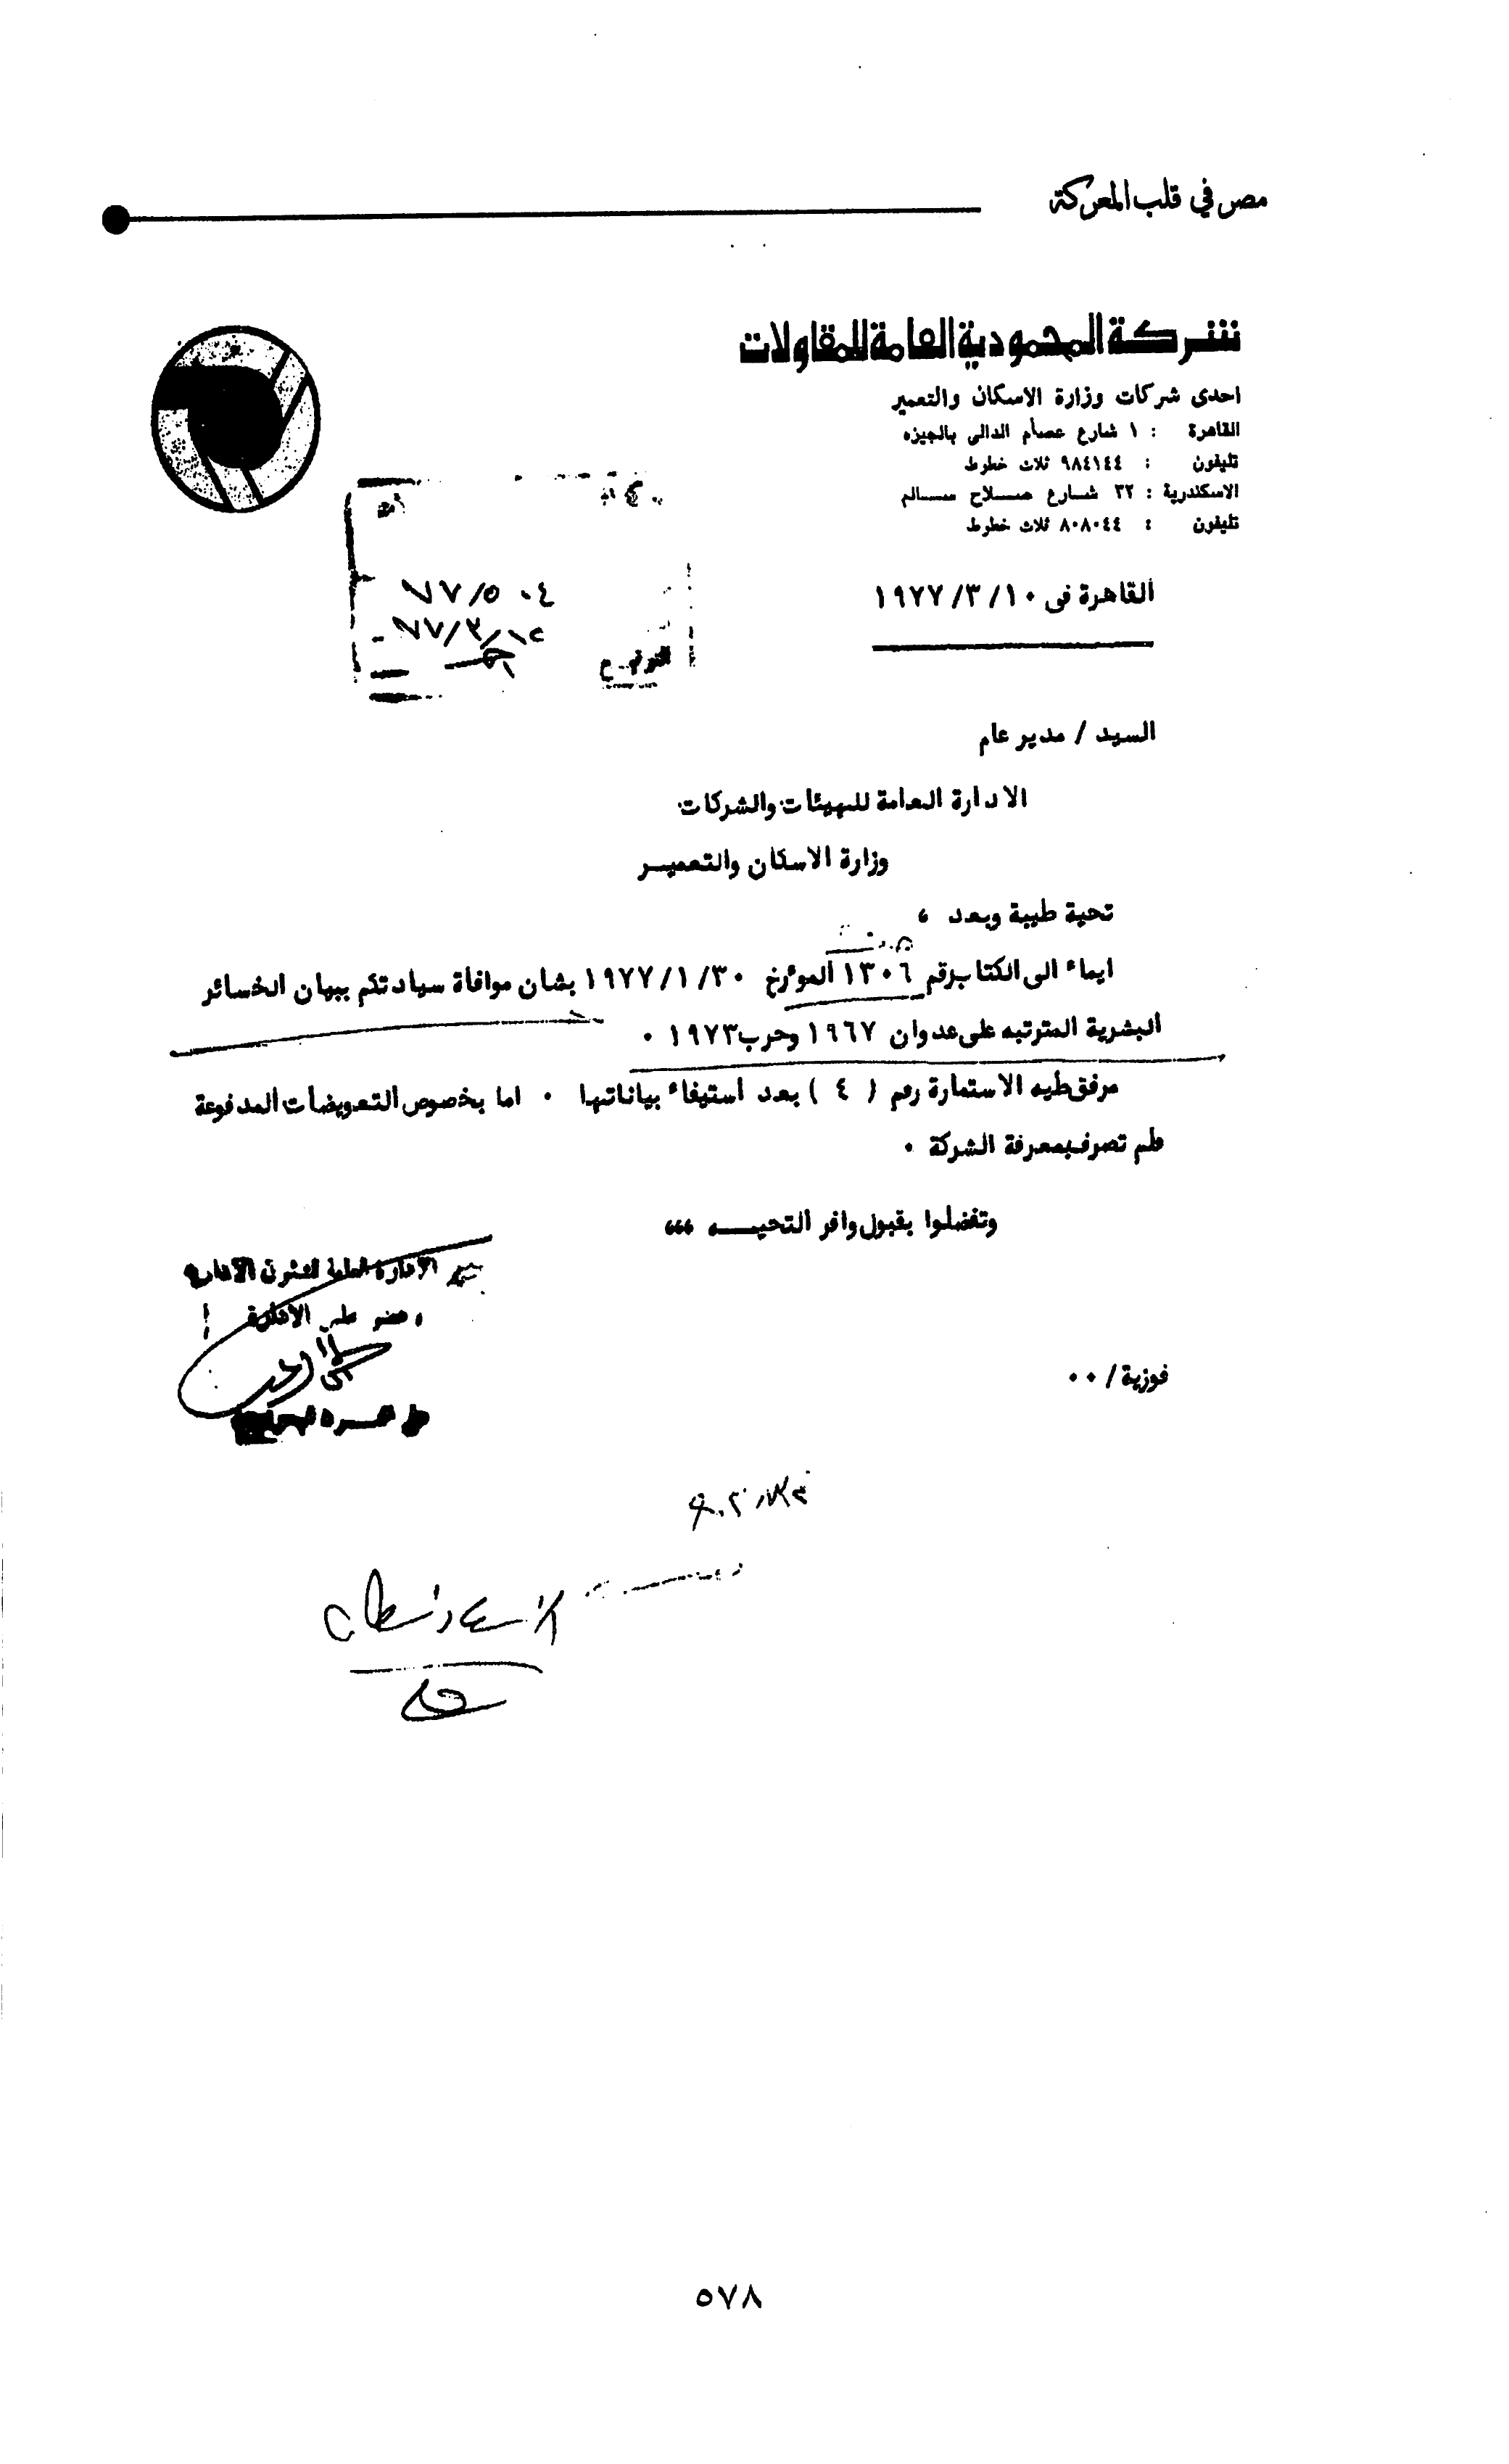 مصر في قلب المعركة
شركة المحمودية العامة للمقاولات
احدى شركات وزارة الاسكان والتعمير
القاهرة : ١ شارع عصام الدالى بالجيزه
تليفون : ٩٨٤١٤٤ ثلاث خطوط
الاسكندرية : ٣٢ شارع صلاح سالم
تليفون : ٨٠٨٠٤٤ ثلاث خطوط
القاهرة فى ١٠/٣/١٩٧٧
التوقيع
السيد / مدير عام
الادارة العامة للهيئات والشركات
وزارة الاسكان والتعميـر
تحية طيبة وبعد ،
ايماء الى الكتاب رقم ١٣٠٦ المؤرخ ٣٠/١/١٩٧٧ بشان موافاة سيادتكم ببيان الخسائر
البشرية المترتبه على عدوان ١٩٦٧ وحرب ١٩٧٣ ٠
مرفق طيه الاستمارة رقم ( ٤ ) بعد استيفاء بياناتها ٠ اما بخصوص التعويضات المدفوعة
فلم تصرف بمعرفة الشركة ٠
وتفضلوا بقبول وافر التحيـــه ،،،
فوزية / ٠٠
٥٧٨